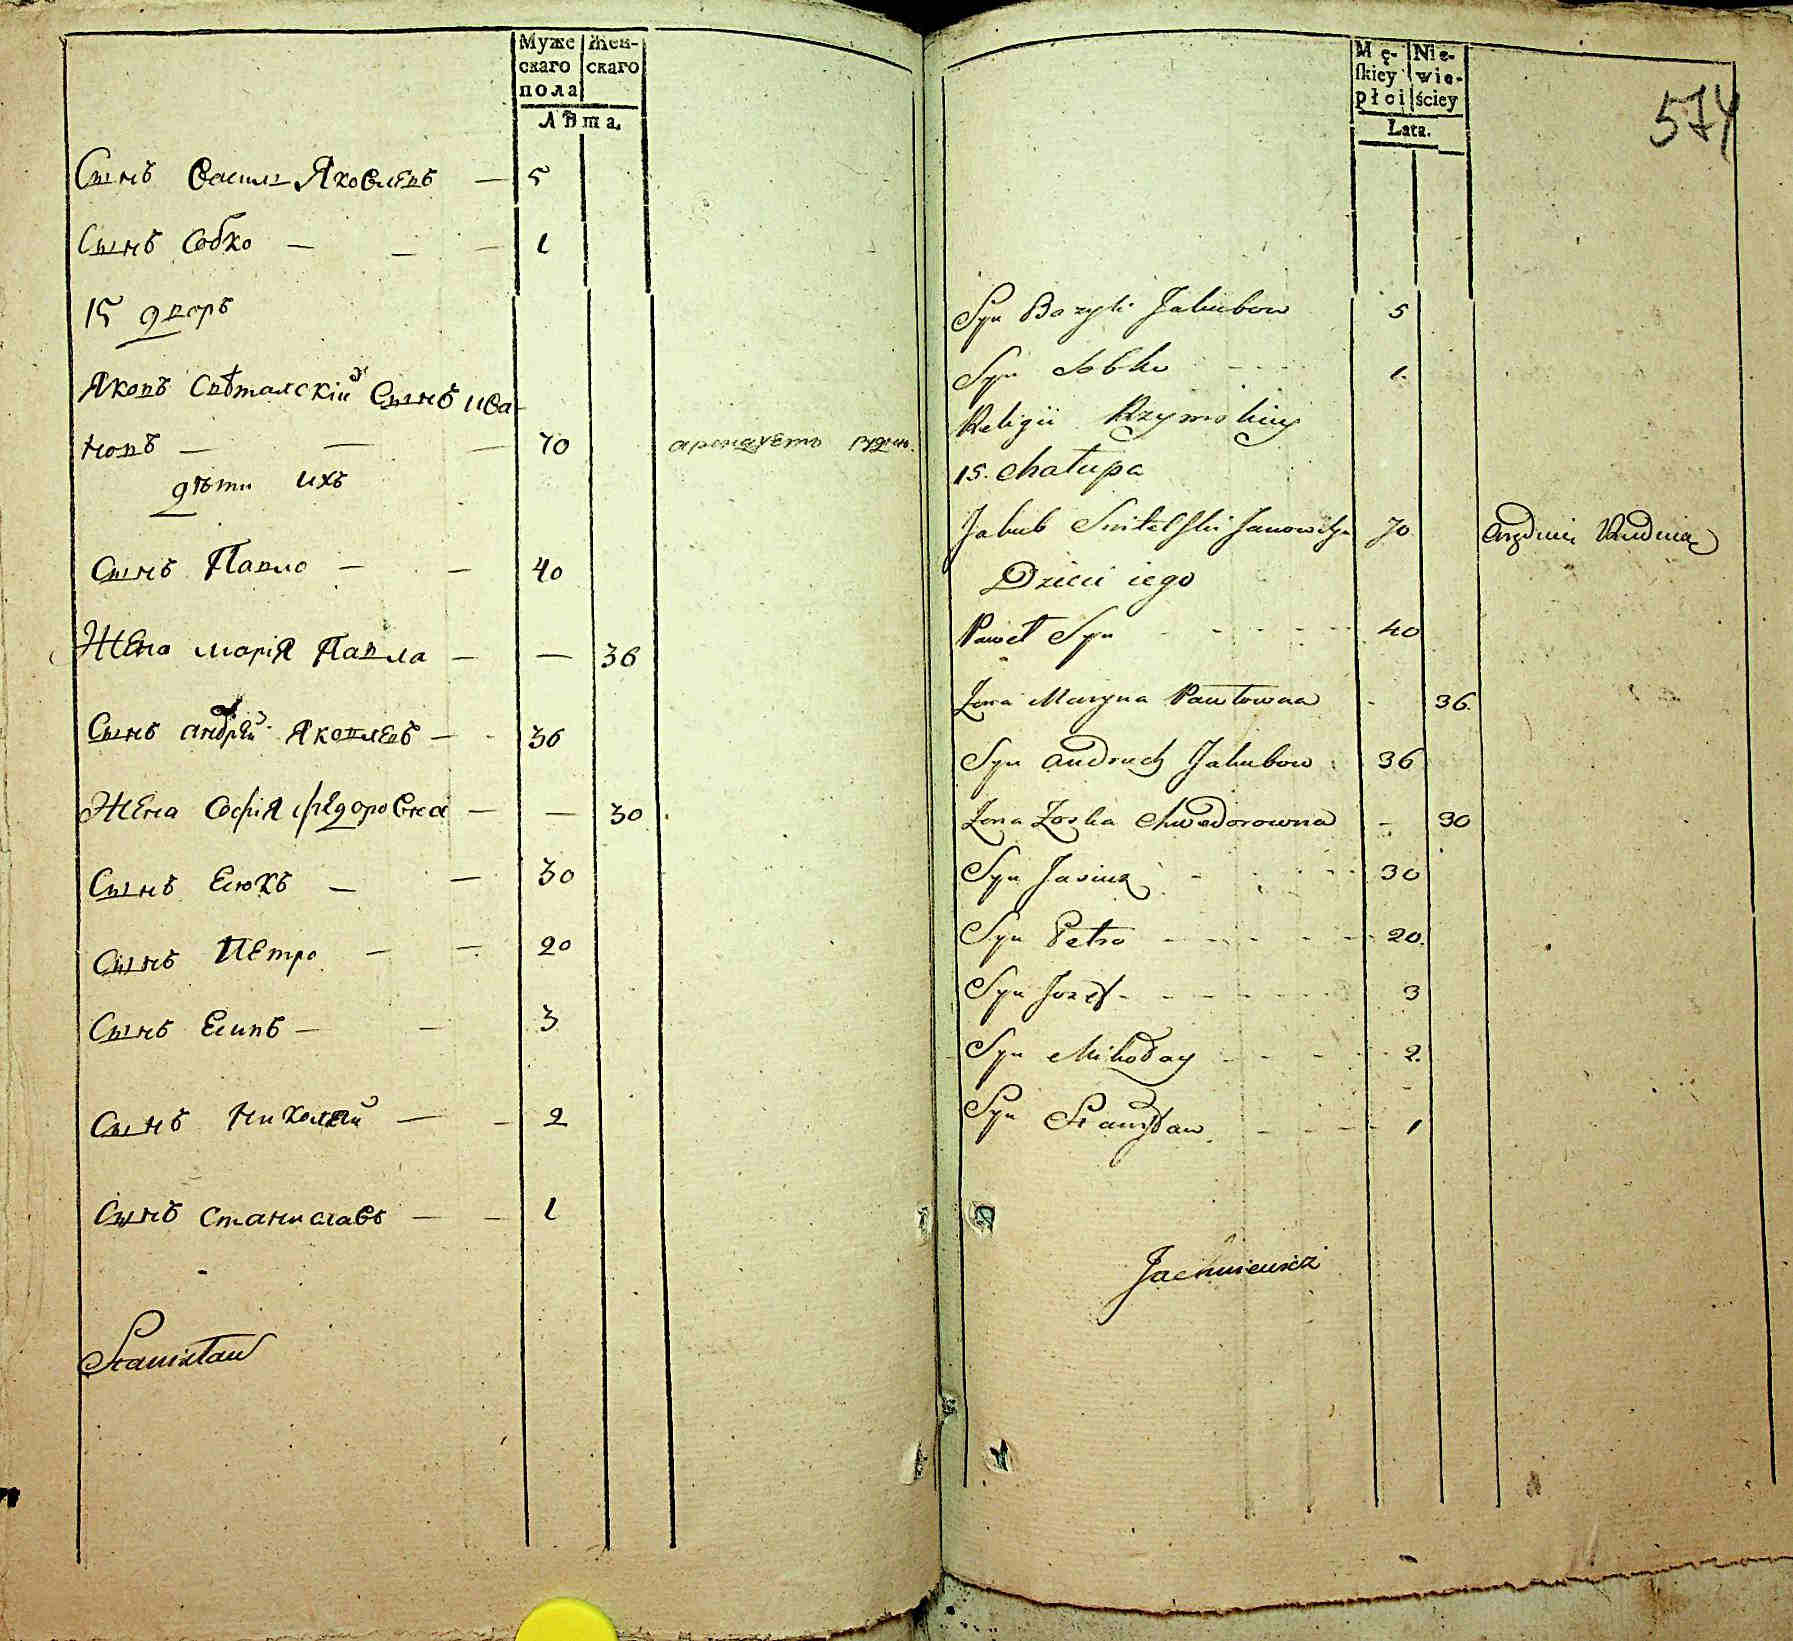 Муже Жен-
скаго скаго
пола
Лѣта.
Сынъ Василь Яковлевъ — 5
Сынъ Собко — — — 1
15 дворъ
Яковъ Свѣталскій Сынъ ива-
новъ — — — 70 арендуетъ
дѣти ихъ
Сынъ Павло — — 40
Жена марія Павла — — 36
Сынъ андрей Яковлевъ — - 36
Жена Софія федоровна — — 30
Сынъ Есюкъ — — 30
Сынъ Петро — — 20
Сынъ Есипъ — — 3
Сынъ Николай — - 2
Сынъ Станиславъ — — 1
Stanisław
Mę- Nie-
ſkiey wie-
płci ściey
Lata.
574
Syn Bazyli Jakubow 5
Syn Sobko - - - 1.
Religii Rzymskiey
15. Chałupa
Jakub Switelſki Janow 70
Dzieci iego
Paweł Syn - - - - - 40
Żona Maryna Pawłowna - 36.
Syn Andruch Jakubow 36
Żona Zoska Chwedorowna - 30
Syn Jasiuk - - - - 30
Syn Petro - - - - - 20.
Syn Jozef - - - - - 3
Syn Mikołay - - - - 2.
Syn Stanisław - - - - 1